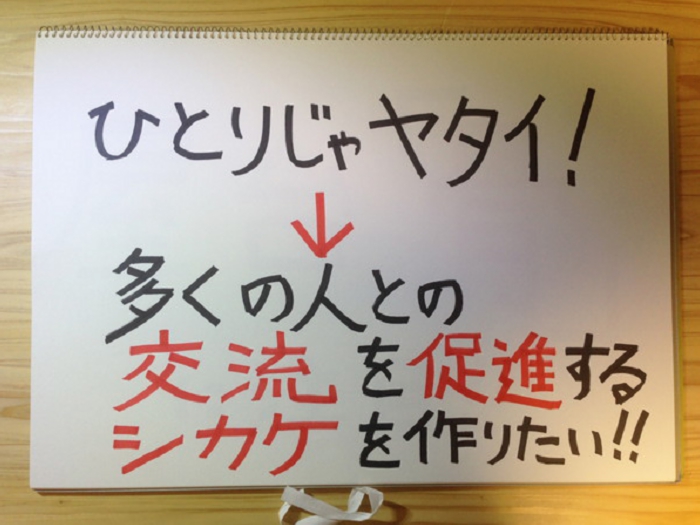 ひとりじゃヤタイ!
↓
多くの人との
交流を促進する
シカケを作りたい!!